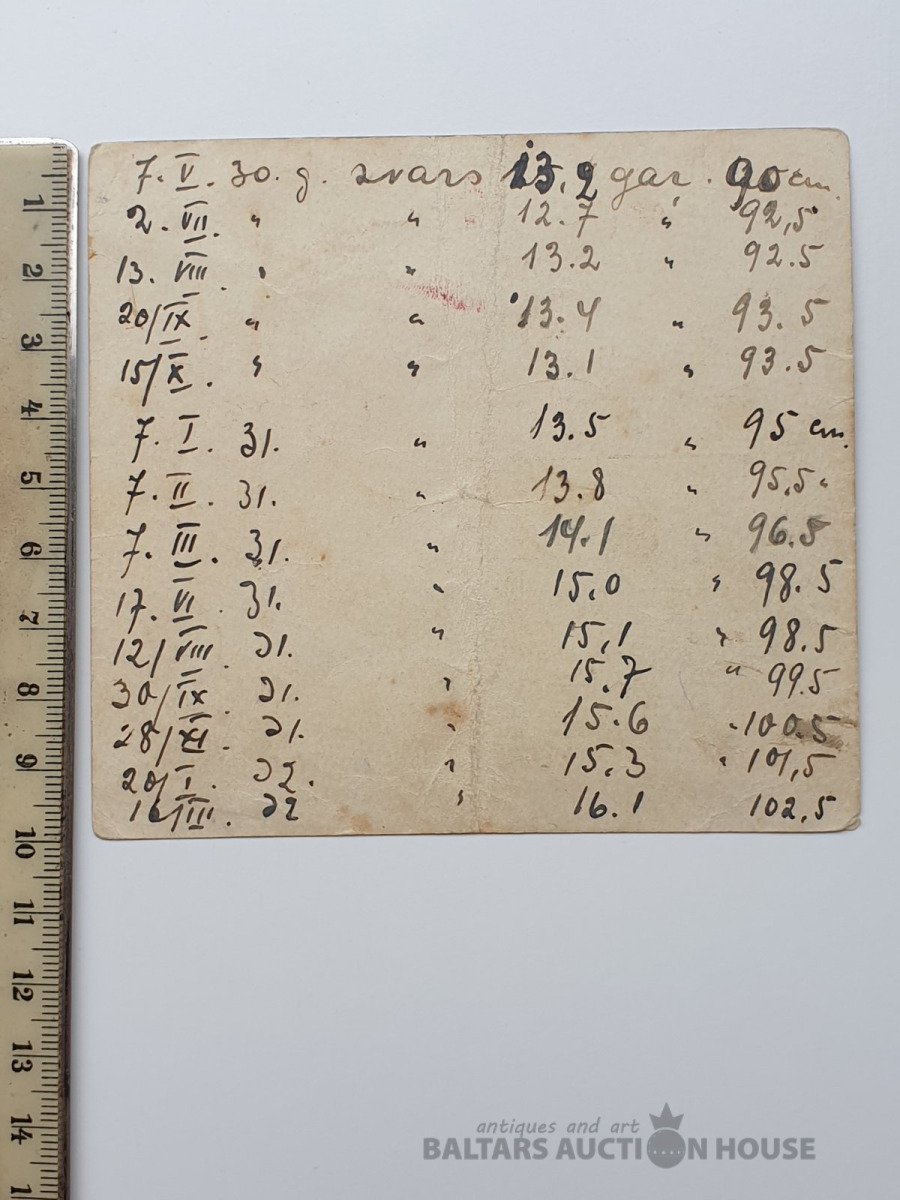 7. V. 30. g. svars 13.2 gar. 90 cm.
2. VII. " " 12.7 " 92,5"
13. VIII " " 13.2 " 92.5
20/IX. " " 13.4 " 93.5
15/X. " " 13.1 " 93.5
7. I. 31. " 13.5 " 95 cm.
7. II. 31. " 13.8 " 95,5"
7. III. 31. " 14.1 " 96.5
17. VI 31. " 15.0 " 98.5
12/VIII. 31. " 15,1 " 98.5
30/IX. 31. " 15.7 " 99.5
28/XI. 31. " 15.6 " 100.5
20/I. 32. " 15.3 " 101,5
/III. 32 " 16.1 102,5
1 2 3 4 5 6 7 8 9 10 11 12 13 14
antiques and art
BALTARS AUCTION HOUSE